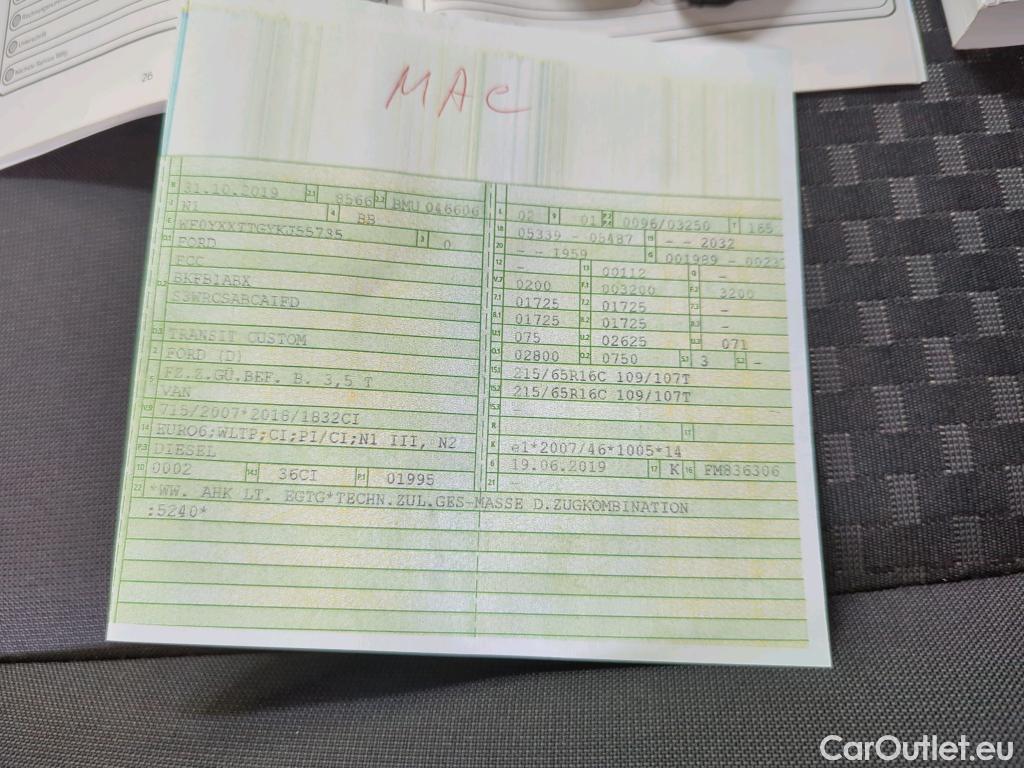 26
MAC
B 31.10.2019 2.1 8566 2.2 BMU 046606
J N1 4 BB
E WF0YXXTTGYKJ55735 3 0
D.1 FORD
FCC
D.2 BKFB1ABX
S3WRCSABCAIFD
D.3 TRANSIT CUSTOM
2 FORD (D)
5 FZ.Z.GÜ.BEF. B. 3,5 T
VAN
V.9 715/2007*2018/1832CI
14 EURO6;WLTP;CI;PI/CI;N1 III, N2
P.3 DIESEL
10 0002 14.1 36CI P.1 01995
22 *WW. AHK LT. EGTG*TECHN.ZUL.GES-MASSE D.ZUGKOMBINATION
:5240*
L 02 9 01 P.2 P.4 0096/03250 T 165
18 05339 - 05487 19 - - 2032
20 - - 1959 G 001989 - 0023
12 - 13 00112 Q -
V.7 0200 F.1 003200 F.2 3200
7.1 01725 7.2 01725 7.3 -
8.1 01725 8.2 01725 8.3 -
U.1 075 U.2 02625 U.3 071
O.1 02800 O.2 0750 S.1 3 S.2 -
15.1 215/65R16C 109/107T
15.2 215/65R16C 109/107T
15.3 -
R 11
K e1*2007/46*1005*14
6 19.06.2019 17 K 16 FM836306
21 -
CarOutlet.eu